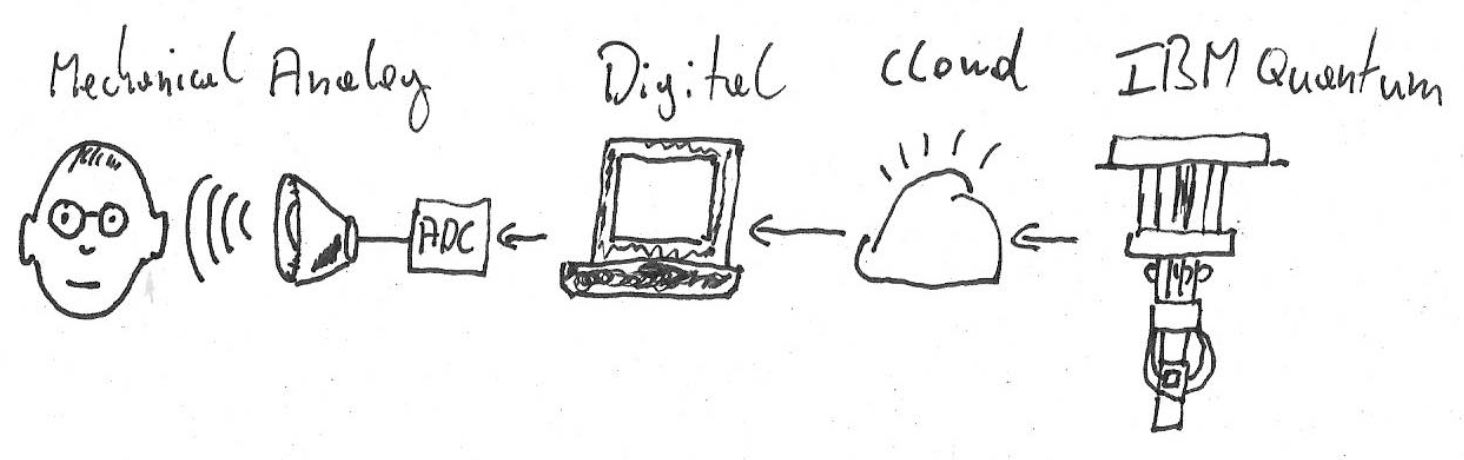 Mechanical Analog Digital Cloud IBM Quantum
ADC